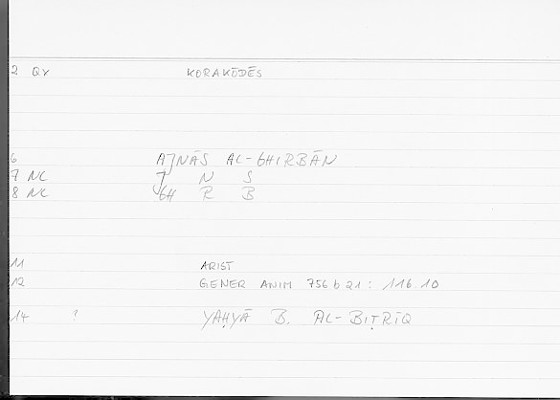 2 QV KORAKŌDĒS
6 AJNĀS AL-GHIRBĀN
7 NC J N S
8 NC GH R B
11 ARIST
12 GENER ANIM 756 b 21 : 116.10
14 ? YAḤYĀ B. AL-BIṬRĪQ